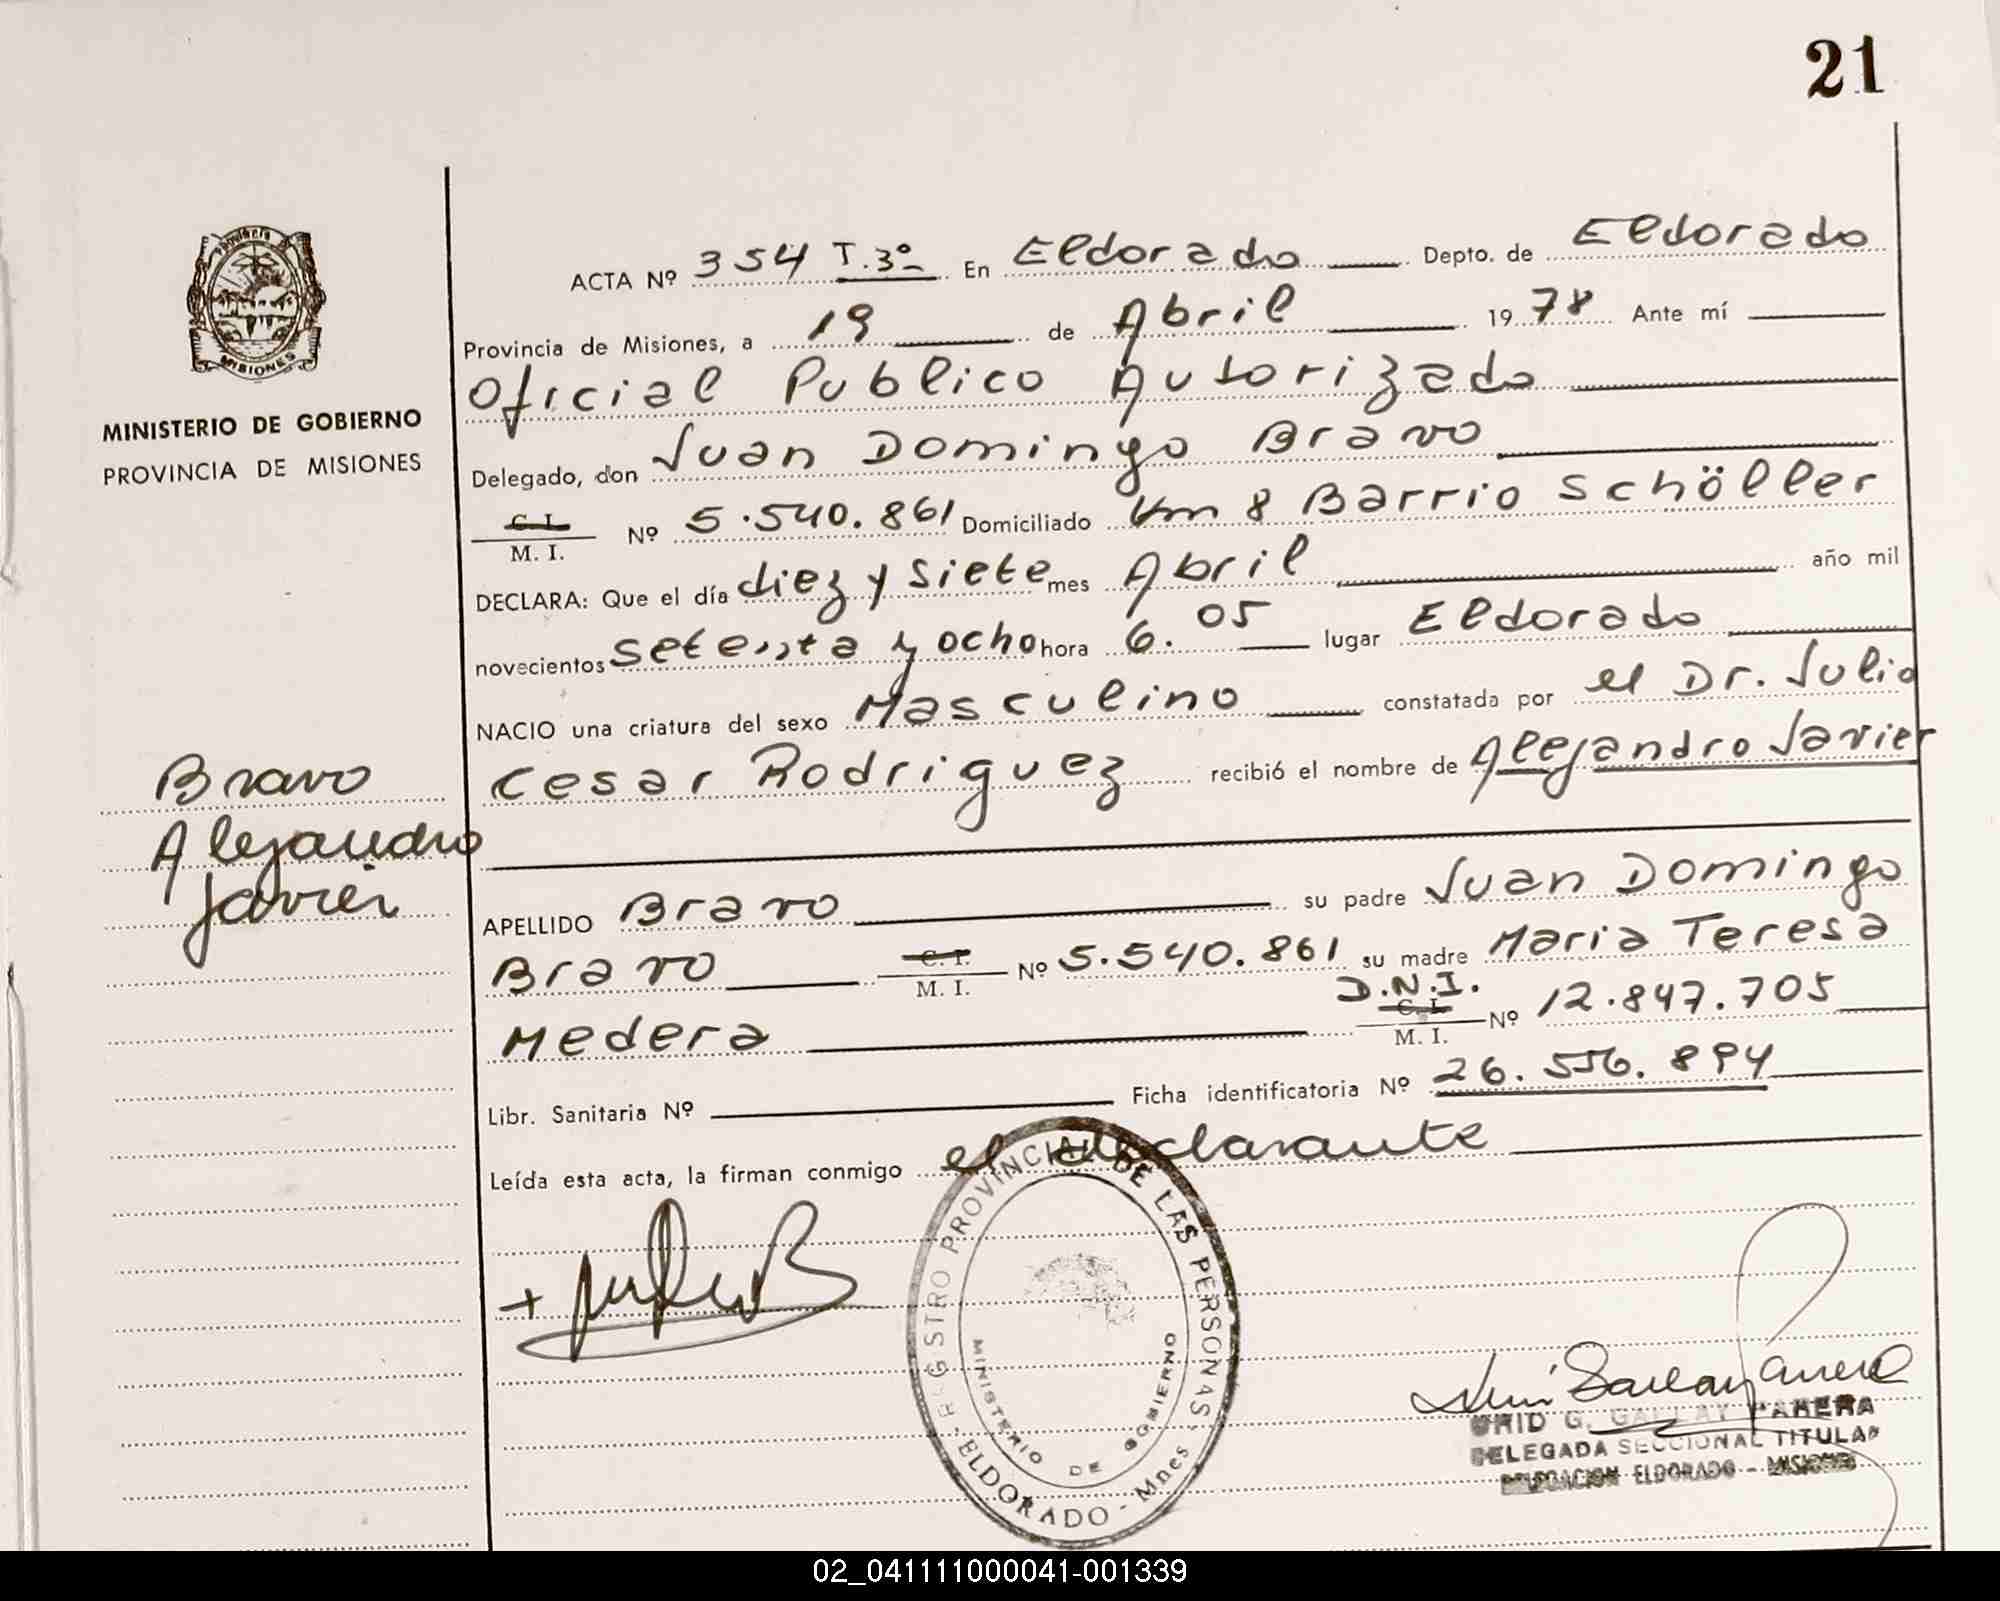 21
Provincia
MISIONES
MINISTERIO DE GOBIERNO
PROVINCIA DE MISIONES
Bravo
Alejandro
Javier
ACTA Nº 354 T.3º En Eldorado Depto. de Eldorado
Provincia de Misiones, a 19 de Abril 1978 Ante mí
Oficial Publico Autorizado
Delegado, don Juan Domingo Bravo
C. I.
M. I. Nº 5.540.861 Domiciliado Km 8 Barrio Schöller
DECLARA: Que el día diez y siete mes Abril año mil
novecientos setenta y ocho hora 6.05 lugar Eldorado
NACIO una criatura del sexo Masculino constatada por el Dr. Julio
Cesar Rodriguez recibió el nombre de Alejandro Javier
APELLIDO Bravo su padre Juan Domingo
Bravo C. I. M. I. Nº 5.540.861 su madre Maria Teresa
Medera D.N.I. C. I. M. I. Nº 12.847.705
Libr. Sanitaria Nº Ficha identificatoria Nº 26.556.894
Leída esta acta, la firman conmigo el declarante
REGISTRO PROVINCIAL DE LAS PERSONAS
MINISTERIO DE GOBIERNO
ELDORADO - Mnes
G. GALLAY PARERA
DELEGADA SECCIONAL TITULAR
DELEGACION ELDORADO - MISIONES
02_041111000041-001339